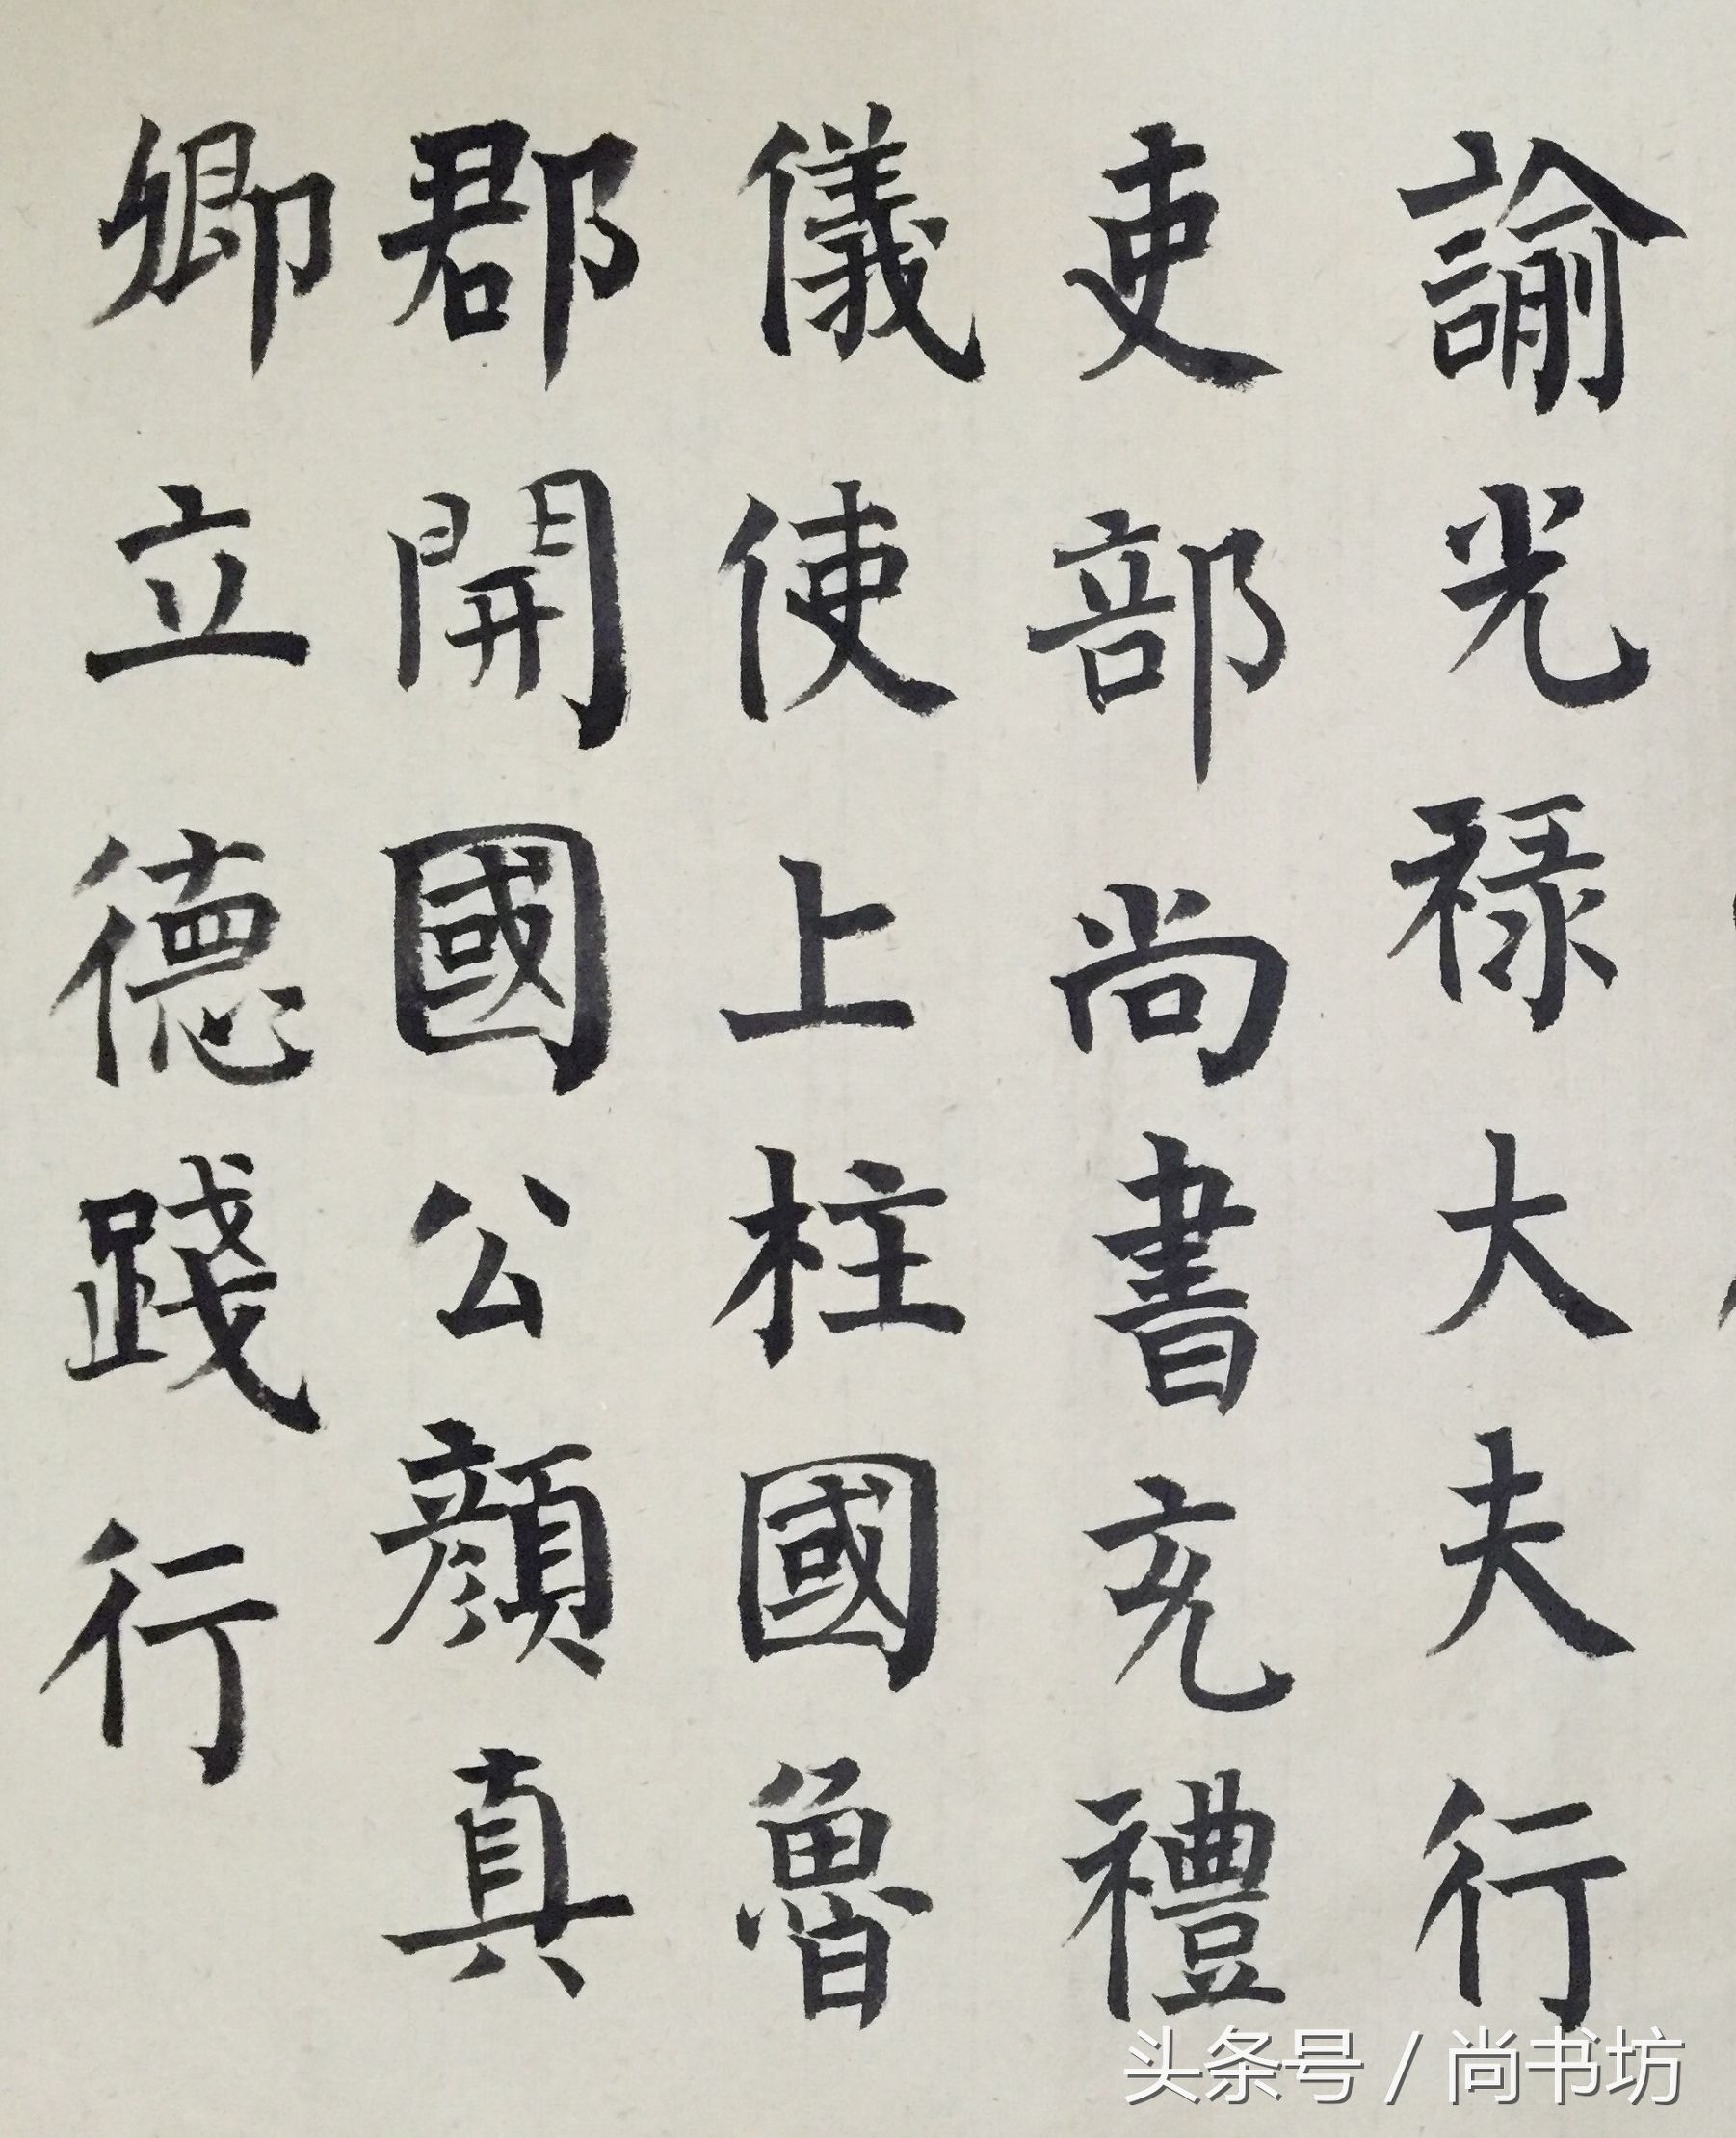 諭光祿大夫行
吏部尚書充禮
儀使上柱國魯
郡開國公顏真
卿立德踐行
头条号 / 尚书坊